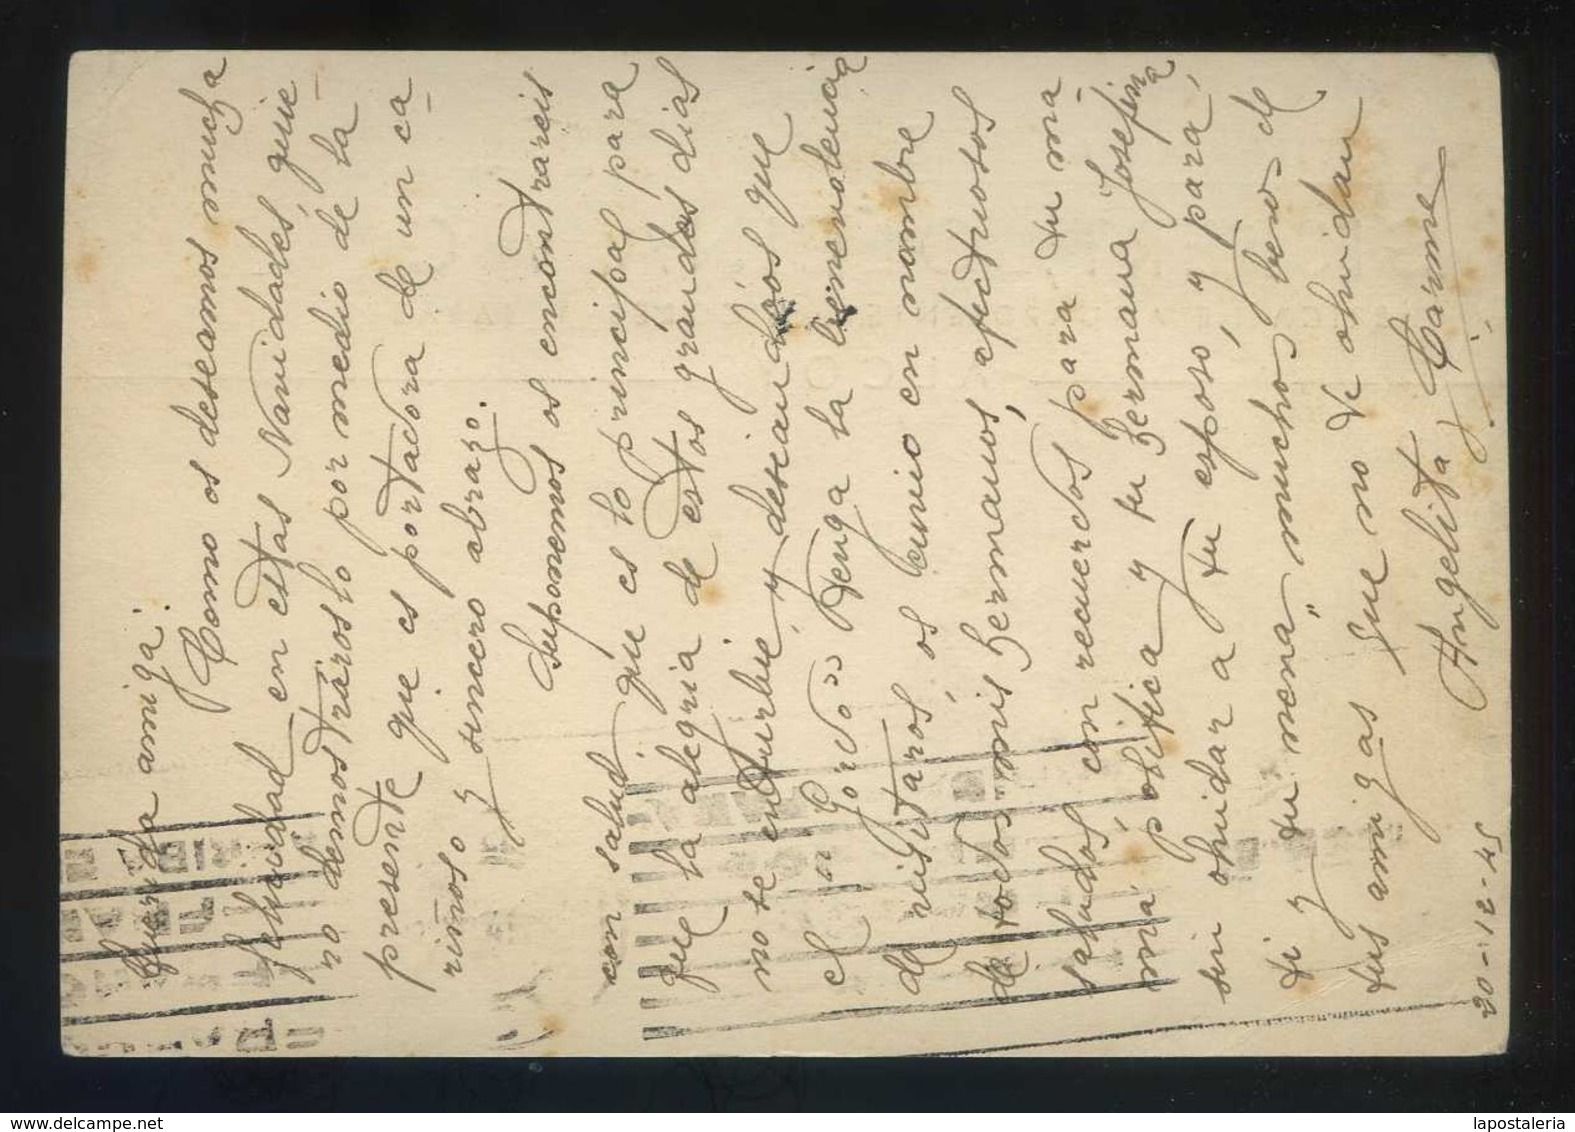 Querida amiga:
Como os deseamos mucha
felicidad en estas Navidades, quie-
ro demostraroslo por medio de la
presente que es portadora de un ca-
riñoso y sincero abrazo.
Suponemos os encontrareis
con salud, que es lo principal para
que la alegria de estos grandes dias
no se enturbie, y deseandoos que
el "Gordo" tenga la benevolencia
de visitaros, os envio en nombre
de todos mis hermanos, afectuosos
saludos, con recuerdos para tu ma-
má política y tu hermana Josefina
sin olvidar a tu esposo, y para
ti y tu nená, muchos besos de
tus amigas que no te olvidan
Angelita y Carme
20-12-45
lapostaleria
www.delcampe.net